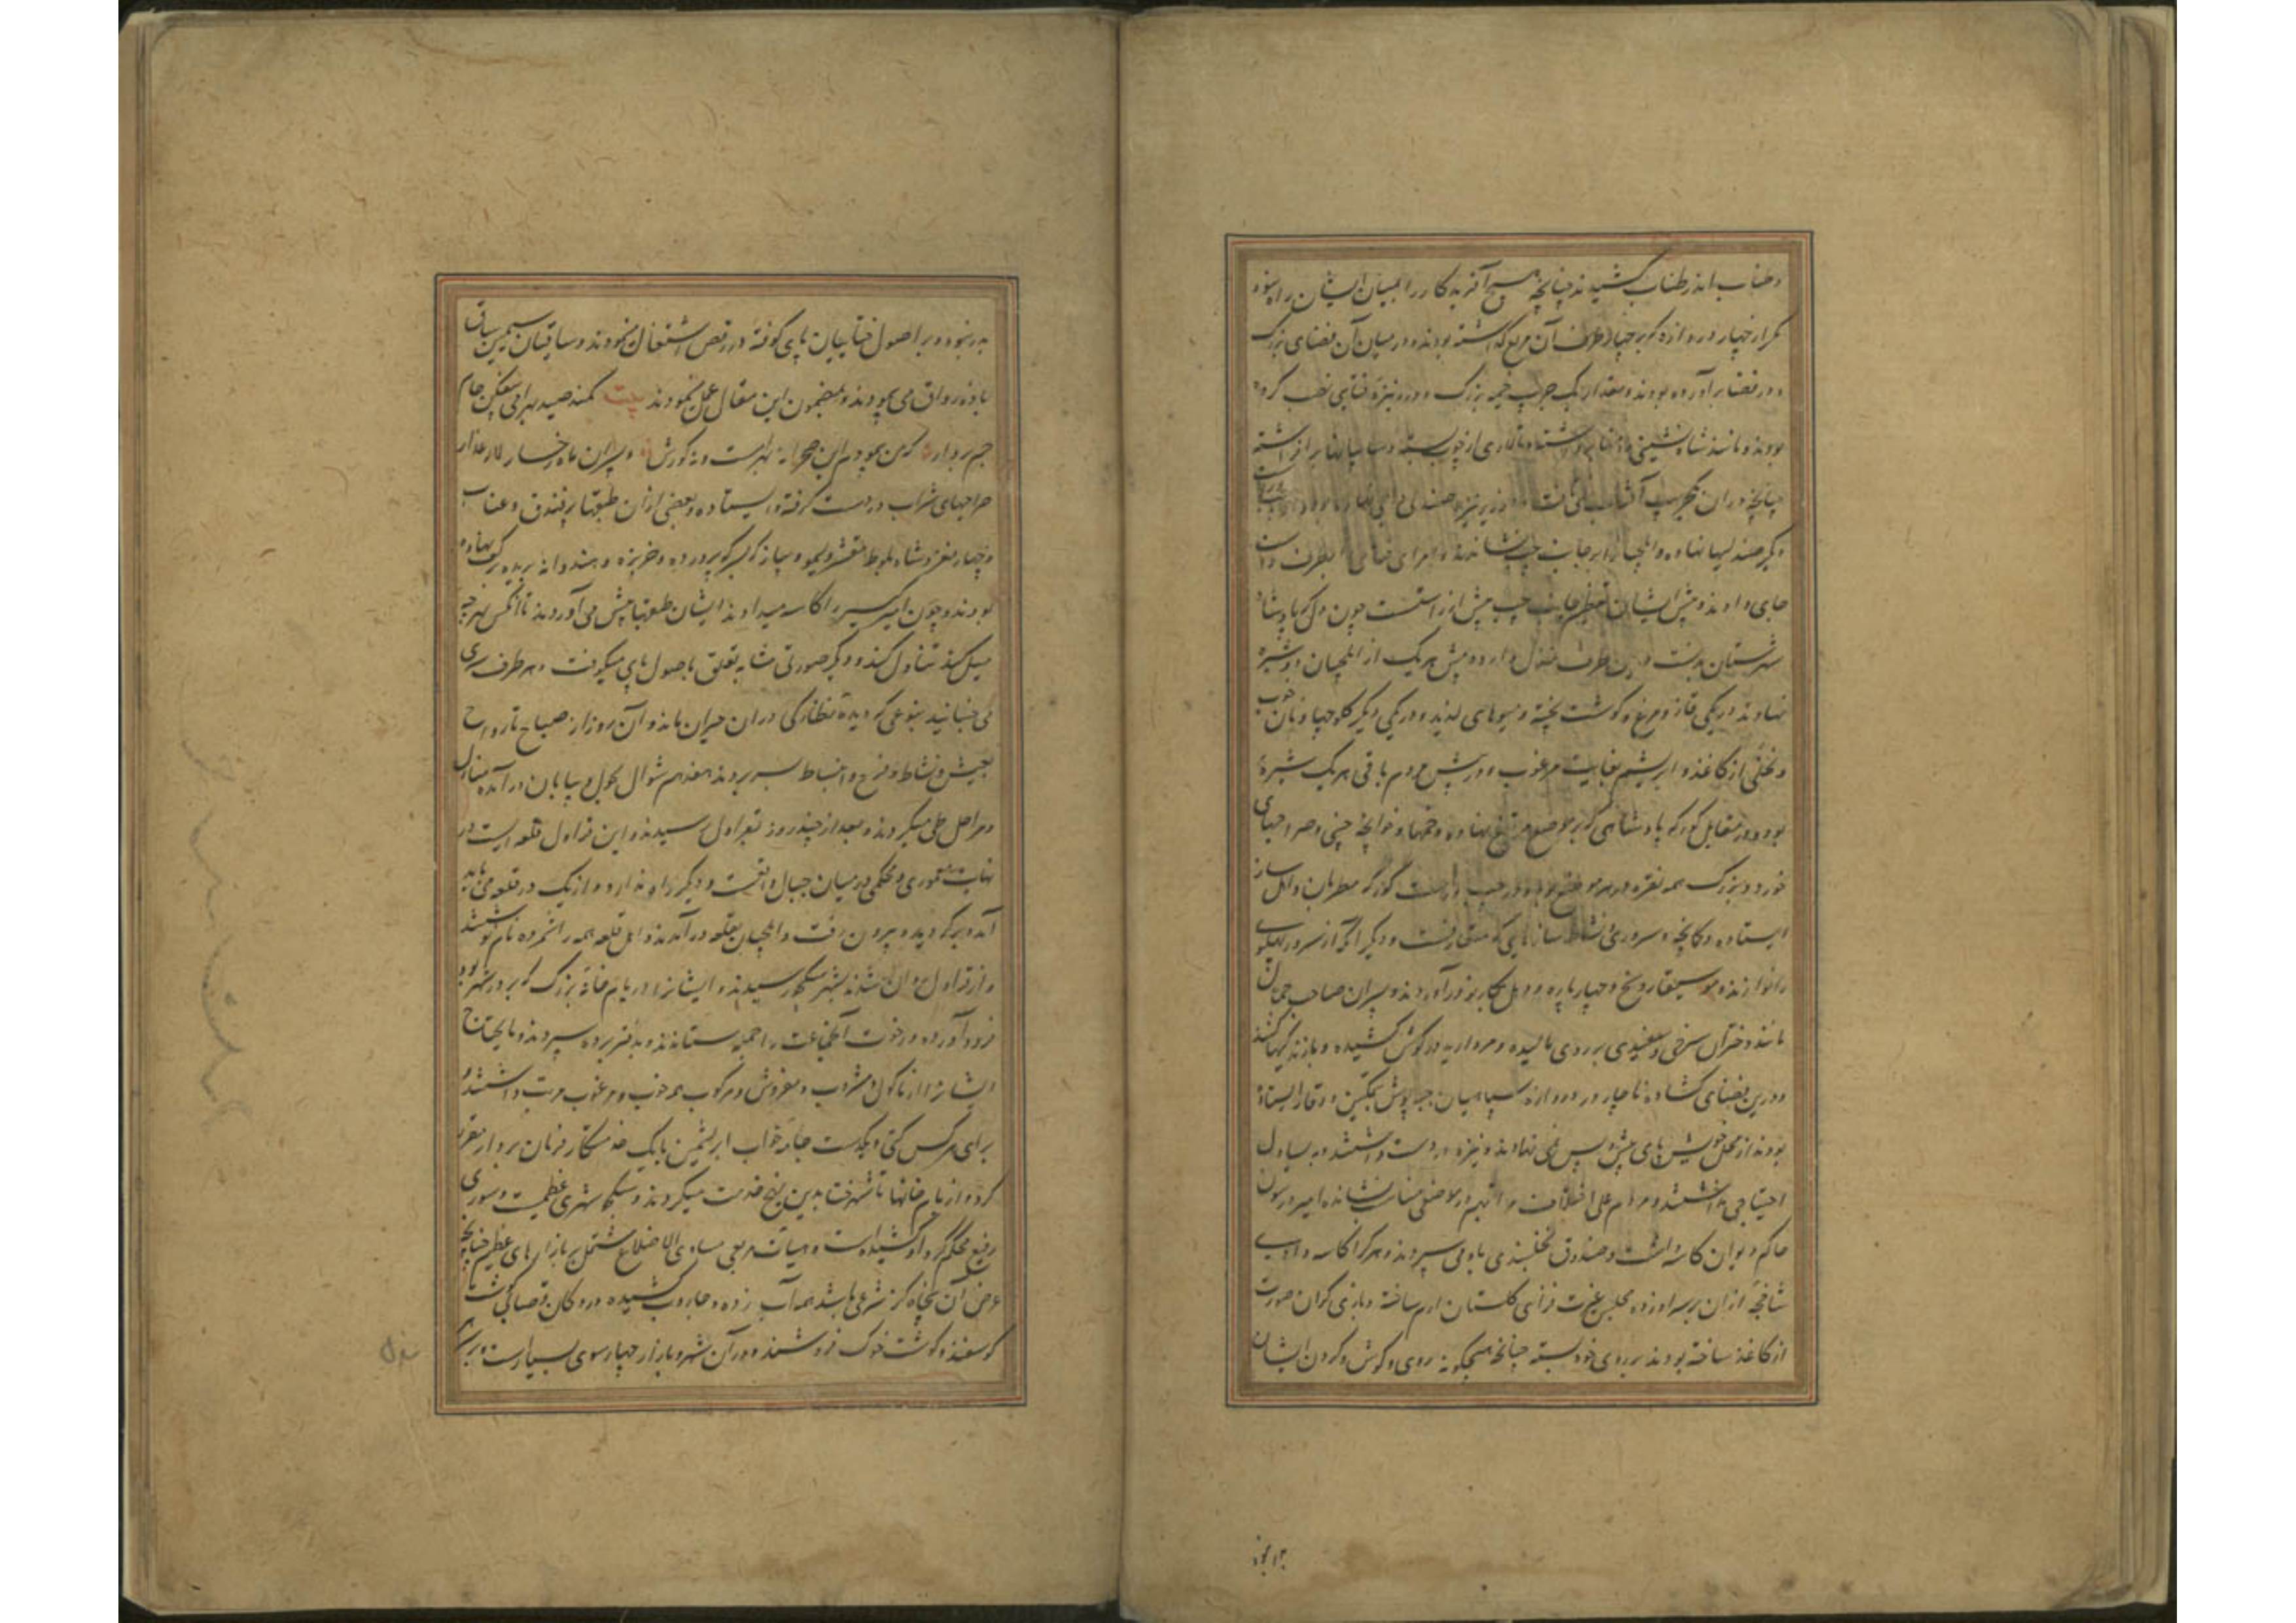 و طناب اندر طناب کشیدند چنانچه هیچ آفریده کار را بمیان ایشان راه نبود
مگر از چهار دروازه که بر چهار طرف آن مربع گذاشته بودند و در میان آن فضای بزرگ
و در فضا بر آورده بودند و مقدار یک جریب خیمه بزرگ و در و نیزه ختایی نصب کرده
بودند و مانند شاه نشینی دامنها برداشته و تالاری از چوب بسته و سایبانها بر افراشته
چنانچه در ان یک جریب آفتاب نمی تافت و در زیر نیزه صندلی
دیگر صندلیها نهاده و ایلچیان را بر جانب چپ نشاندند و امرای ختای بطرف راست
جای دادند و پیش ایشان تعظیم جانب چپ بیش از راست است چون دل که پادشاه
شهرستان بدنست درین طرف منزل دارد و پیش هر یک از ایلچیان دو شیره
نهادند در یکی قاز و مرغ و گوشت پخته و میوهای لذیذ و در یکی دیگر کلوچها و نان خوب
و نخلی از کاغذ و ابریشم بغایت مرغوب و در پیش مردم باقی هر یک شیره
بود و در مقابل کورکه پادشاهی که بر موضع مرتفع نهاده و خمها و خوانچه چینی و صراحیهای
خورد و بزرگ همه نقره در هر موضع بود و در چپ و راست کورکه مطربان و اهل ساز
ایستاده و کمانچه و سرود نشاط سازهایی که متعارفست و دیگر آنکه از سرود بیکوی
را نوازنده موسیقار و نخ و چهار پاره و دهل بکار بر در آوردند و پسران صاحب جمال
مانند دختران سرخی و سفیدی بر روی مالیده و مروارید در گوش کشیده و بازندگیها کنند
و درین فضای گشاده تا چهار دروازه سپاهیان جبه پوش بتمکین و وقار ایستاده
بودند از محل خویش پای پیش و پس نمی نهادند و نیزه در دست داشتند و به یساول
احتیاجی نداشتند و مردم علی اختلاف مراتبهم در موضعی مناسب نشانده امیر
حاکم دیوان کاسه داشت و صندوق نخلبندی باو می سپردند و هر کرا کاسه دادی
شاخچه از ان بر سر او زده مجلس غیرت فزای گلستان ارم ساخته و بازی گران صورت
از کاغذ ساخته بودند بر روی خود بسته چنانچه هیچگونه روی و گوش و گردن ایشان
بدر نبود و بر اصول ختاییان پای کوفته در رقص اشتغال نمودند و ساقیان سیمین ساق
باده رواق می پیمودند و بمضمون این مقال عمل نمودند بیت کمند صید بهرامی بیفکن جام
جم بردار که من پیمودم این صحرا نه بهرامست و نه گورش و پسران ماه رخسار لاله عذار
صراحیهای شراب در دست گرفته و ایستاده و بعضی از ان طبقها پر فندق و عناب
و چهار مغز و شاه بلوط مقشر و لیمو و سیر و پیاز بسرکه پرورده و خربزه و هندوانه بریده بر کف نهاده
بودند و چون امیر کسی را کاسه میداد ایشان طبقها پیش می آوردند تا آنکس بهر چه
میل کند تناول کند و دیگر صورتی مشابه لقلق باصول پای میکوفت و هر طرف سری
می جنبانید بنوعی که دیده نظارگی در ان حیران ماند و آن روز از صباح تا رواح
بعیش و نشاط و فرح و انبساط بسر بردند هفدهم شوال بچول و بیابان در آمده منازل
و مراحل طی میکردند و بعد از چند روز بقراول رسیدند و این قراول قلعه ایست در
نهایت محکمی در میان جبال واقعست و دیگر راه ندارد و از یک در قلعه می باید
آمد و بدیگر در بیرون رفت و ایلچیان بقلعه در آمدند و اهل قلعه همه را شمرده نام نوشتند
و از قراول روان شدند بشهر سکجو رسیدند و ایشانرا در یام خانه بزرگ که بر در شهر بود
فرود آورده و رخوت آن جماعت را جمله ستاندند و بدفتر برده سپردند و مایحتاج
ایشانرا از ماکول و مشروب و مفروش و مرکوب همه خوب و مرغوب مرتب داشتند و
برای هر کس کتی و یکدست جامه خواب ابریشمین با یک خدمتکار فرمان بردار مقرر
کرده از یام خانها تا شهر ختا بدین نهج خدمت میکردند و سکجو شهری عظیمست و سوری
رفیع محکم گرد او کشیده است و هیات مربعی مساوی الاضلاع مشتمل بر بازارهای عظیم چنانچه
عرض آن پنجاه گز شرعی باشد همه آب زده و جاروب کشیده و در دکان قصابی گوشت
گوسفند و گوشت خوک فروشند و در آن شهر و بازار چهارسوی بسیارست